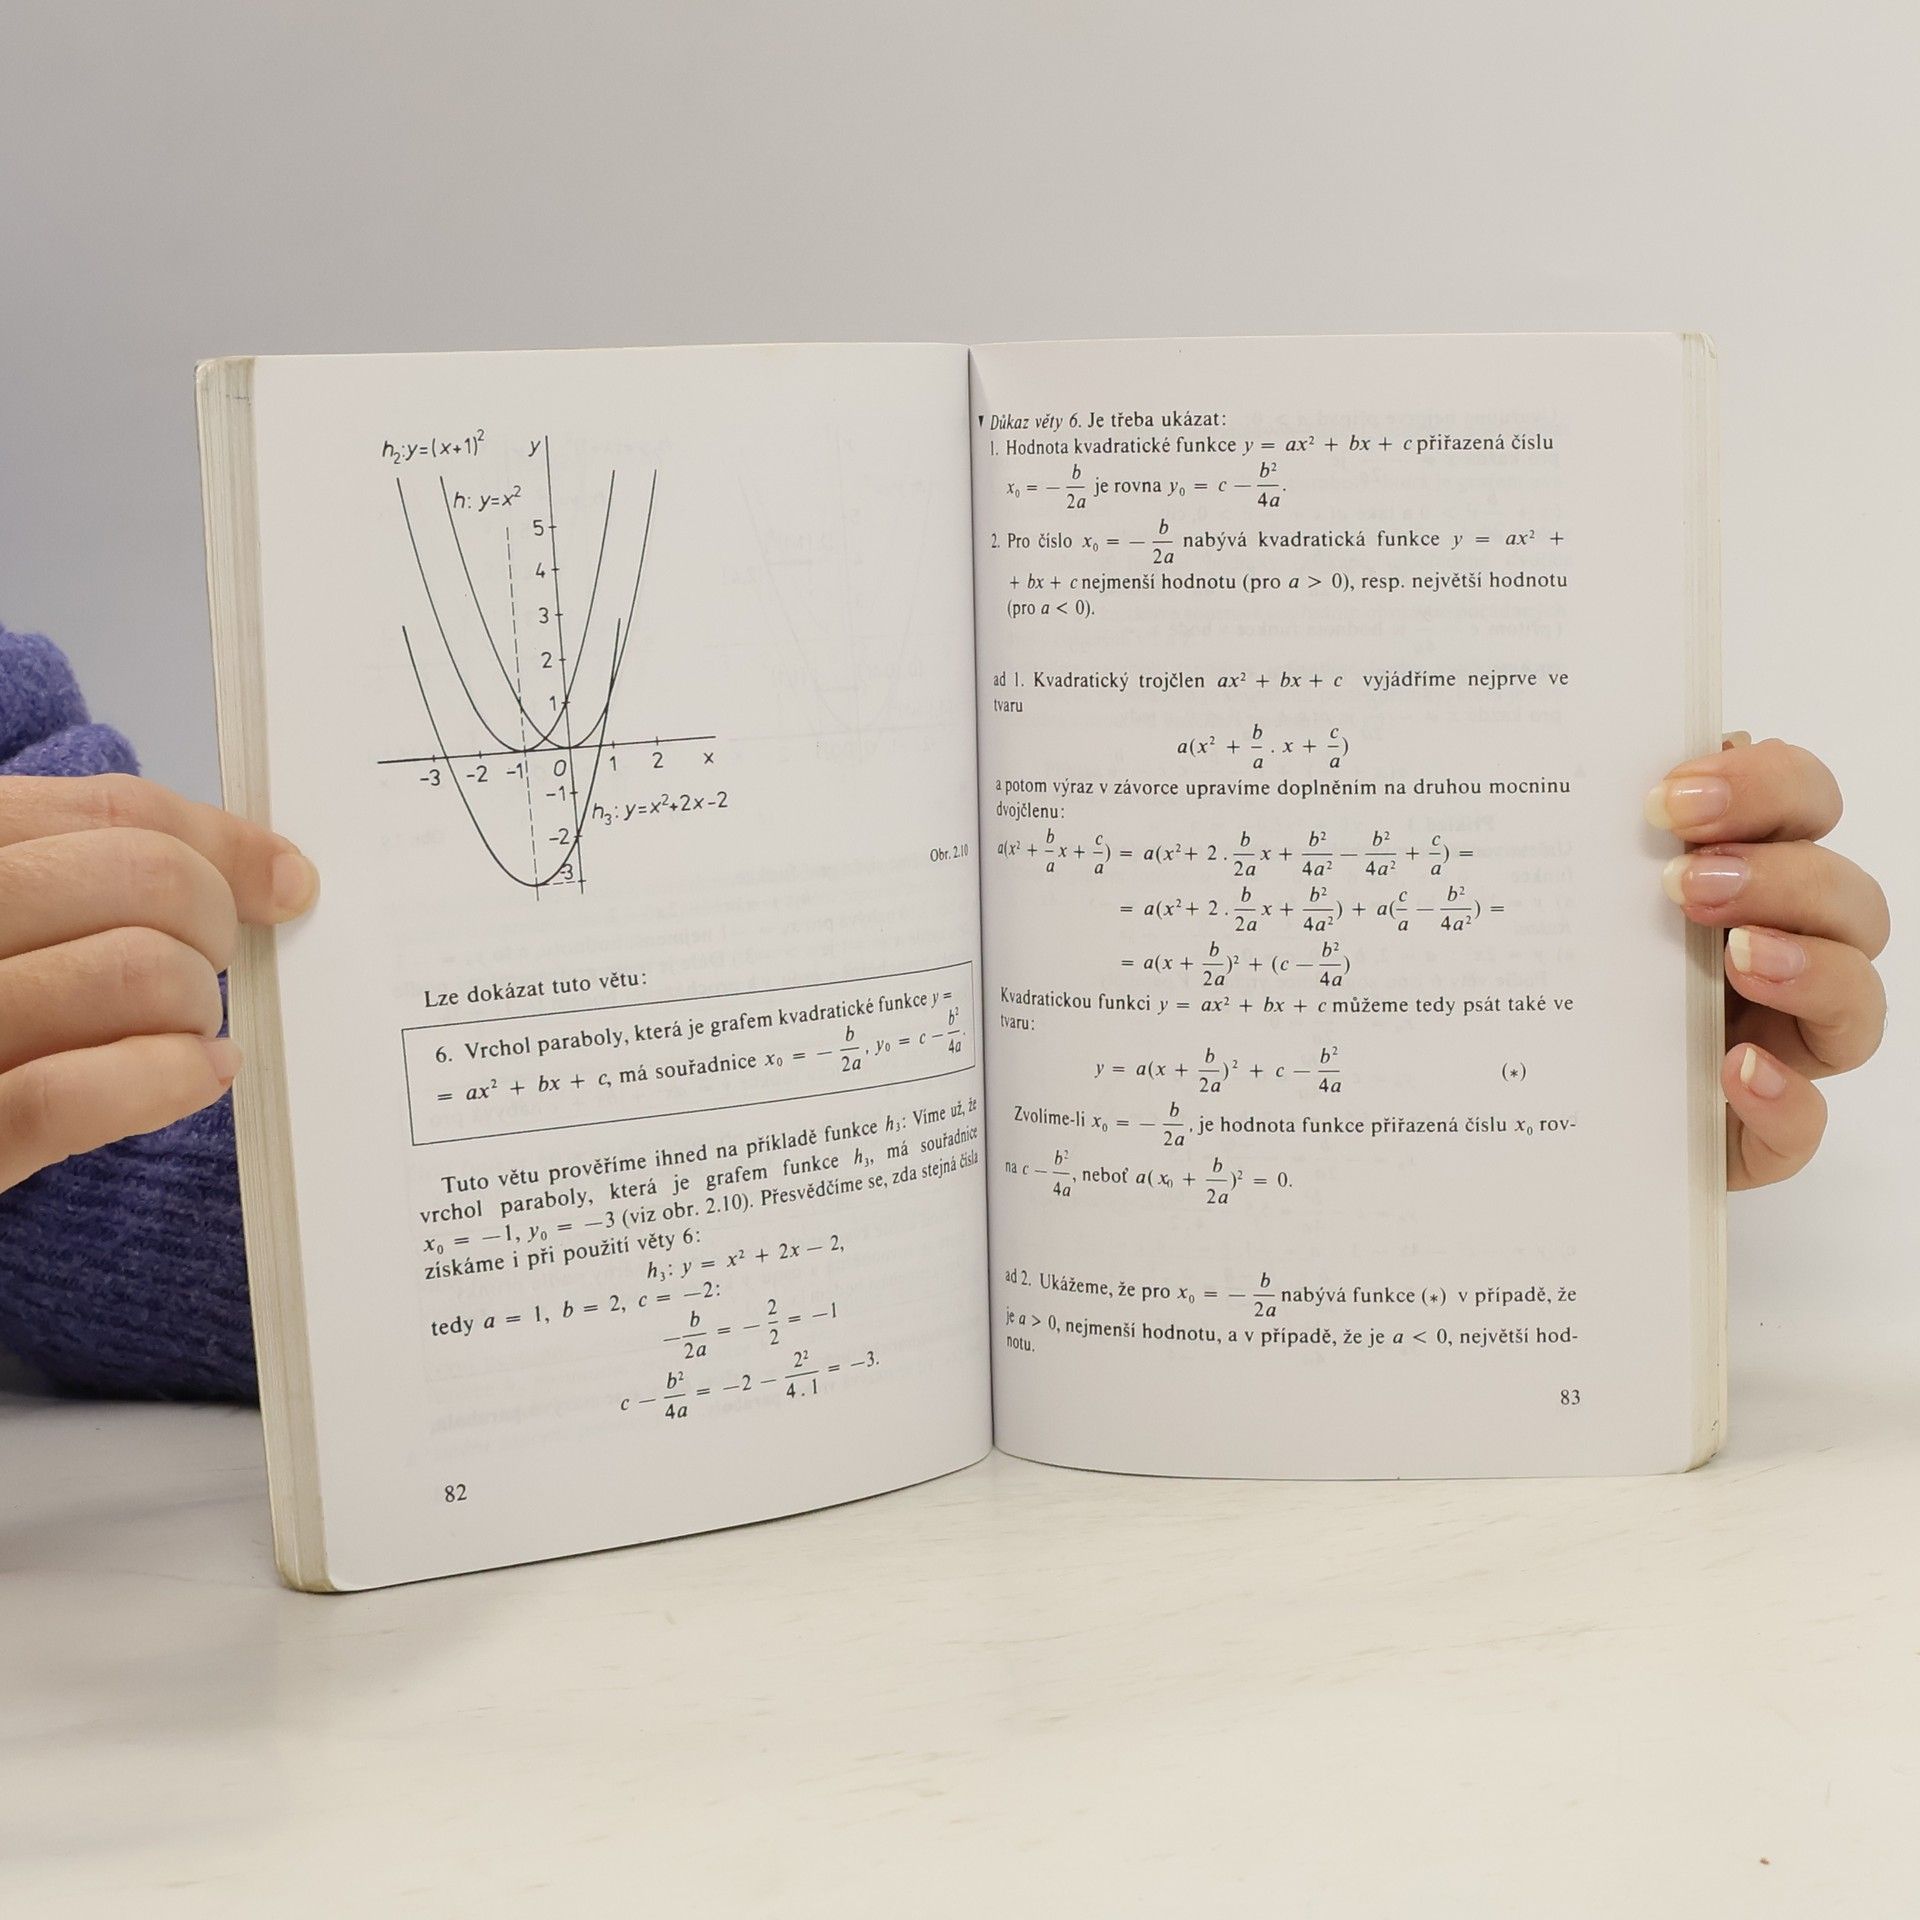 h₂: y=(x+1)²
y
h: y=x²
5
4
3
2
1
-3 -2 -1 0 1 2 x
-1
h₃: y=x²+2x-2
-2
-3
Obr. 2.10
Lze dokázat tuto větu:
6. Vrchol paraboly, která je grafem kvadratické funkce y =
= ax² + bx + c, má souřadnice x₀ = − b/2a, y₀ = c − b²/4a.
Tuto větu prověříme ihned na příkladě funkce h₃: Víme už, že
vrchol paraboly, která je grafem funkce h₃, má souřadnice
x₀ = −1, y₀ = −3 (viz obr. 2.10). Přesvědčíme se, zda stejná čísla
získáme i při použití věty 6:
h₃: y = x² + 2x − 2,
tedy a = 1, b = 2, c = −2:
− b/2a = − 2/2 = −1
c − b²/4a = −2 − 2²/4 . 1 = −3.
82
▼ Důkaz věty 6. Je třeba ukázat:
1. Hodnota kvadratické funkce y = ax² + bx + c přiřazená číslu
x₀ = − b/2a je rovna y₀ = c − b²/4a.
2. Pro číslo x₀ = − b/2a nabývá kvadratická funkce y = ax² +
+ bx + c nejmenší hodnotu (pro a > 0), resp. největší hodnotu
(pro a < 0).
ad 1. Kvadratický trojčlen ax² + bx + c vyjádříme nejprve ve
tvaru
a(x² + b/a . x + c/a)
a potom výraz v závorce upravíme doplněním na druhou mocninu
dvojčlenu:
a(x² + b/a x + c/a) = a(x² + 2 . b/2a x + b²/4a² − b²/4a² + c/a) =
= a(x² + 2 . b/2a x + b²/4a²) + a(c/a − b²/4a²) =
= a(x + b/2a)² + (c − b²/4a)
Kvadratickou funkci y = ax² + bx + c můžeme tedy psát také ve
tvaru:
y = a(x + b/2a)² + c − b²/4a (∗)
Zvolíme-li x₀ = − b/2a, je hodnota funkce přiřazená číslu x₀ rov-
na c − b²/4a, neboť a(x₀ + b/2a)² = 0.
ad 2. Ukážeme, že pro x₀ = − b/2a nabývá funkce (∗) v případě, že
je a > 0, nejmenší hodnotu, a v případě, že je a < 0, největší hod-
notu.
83